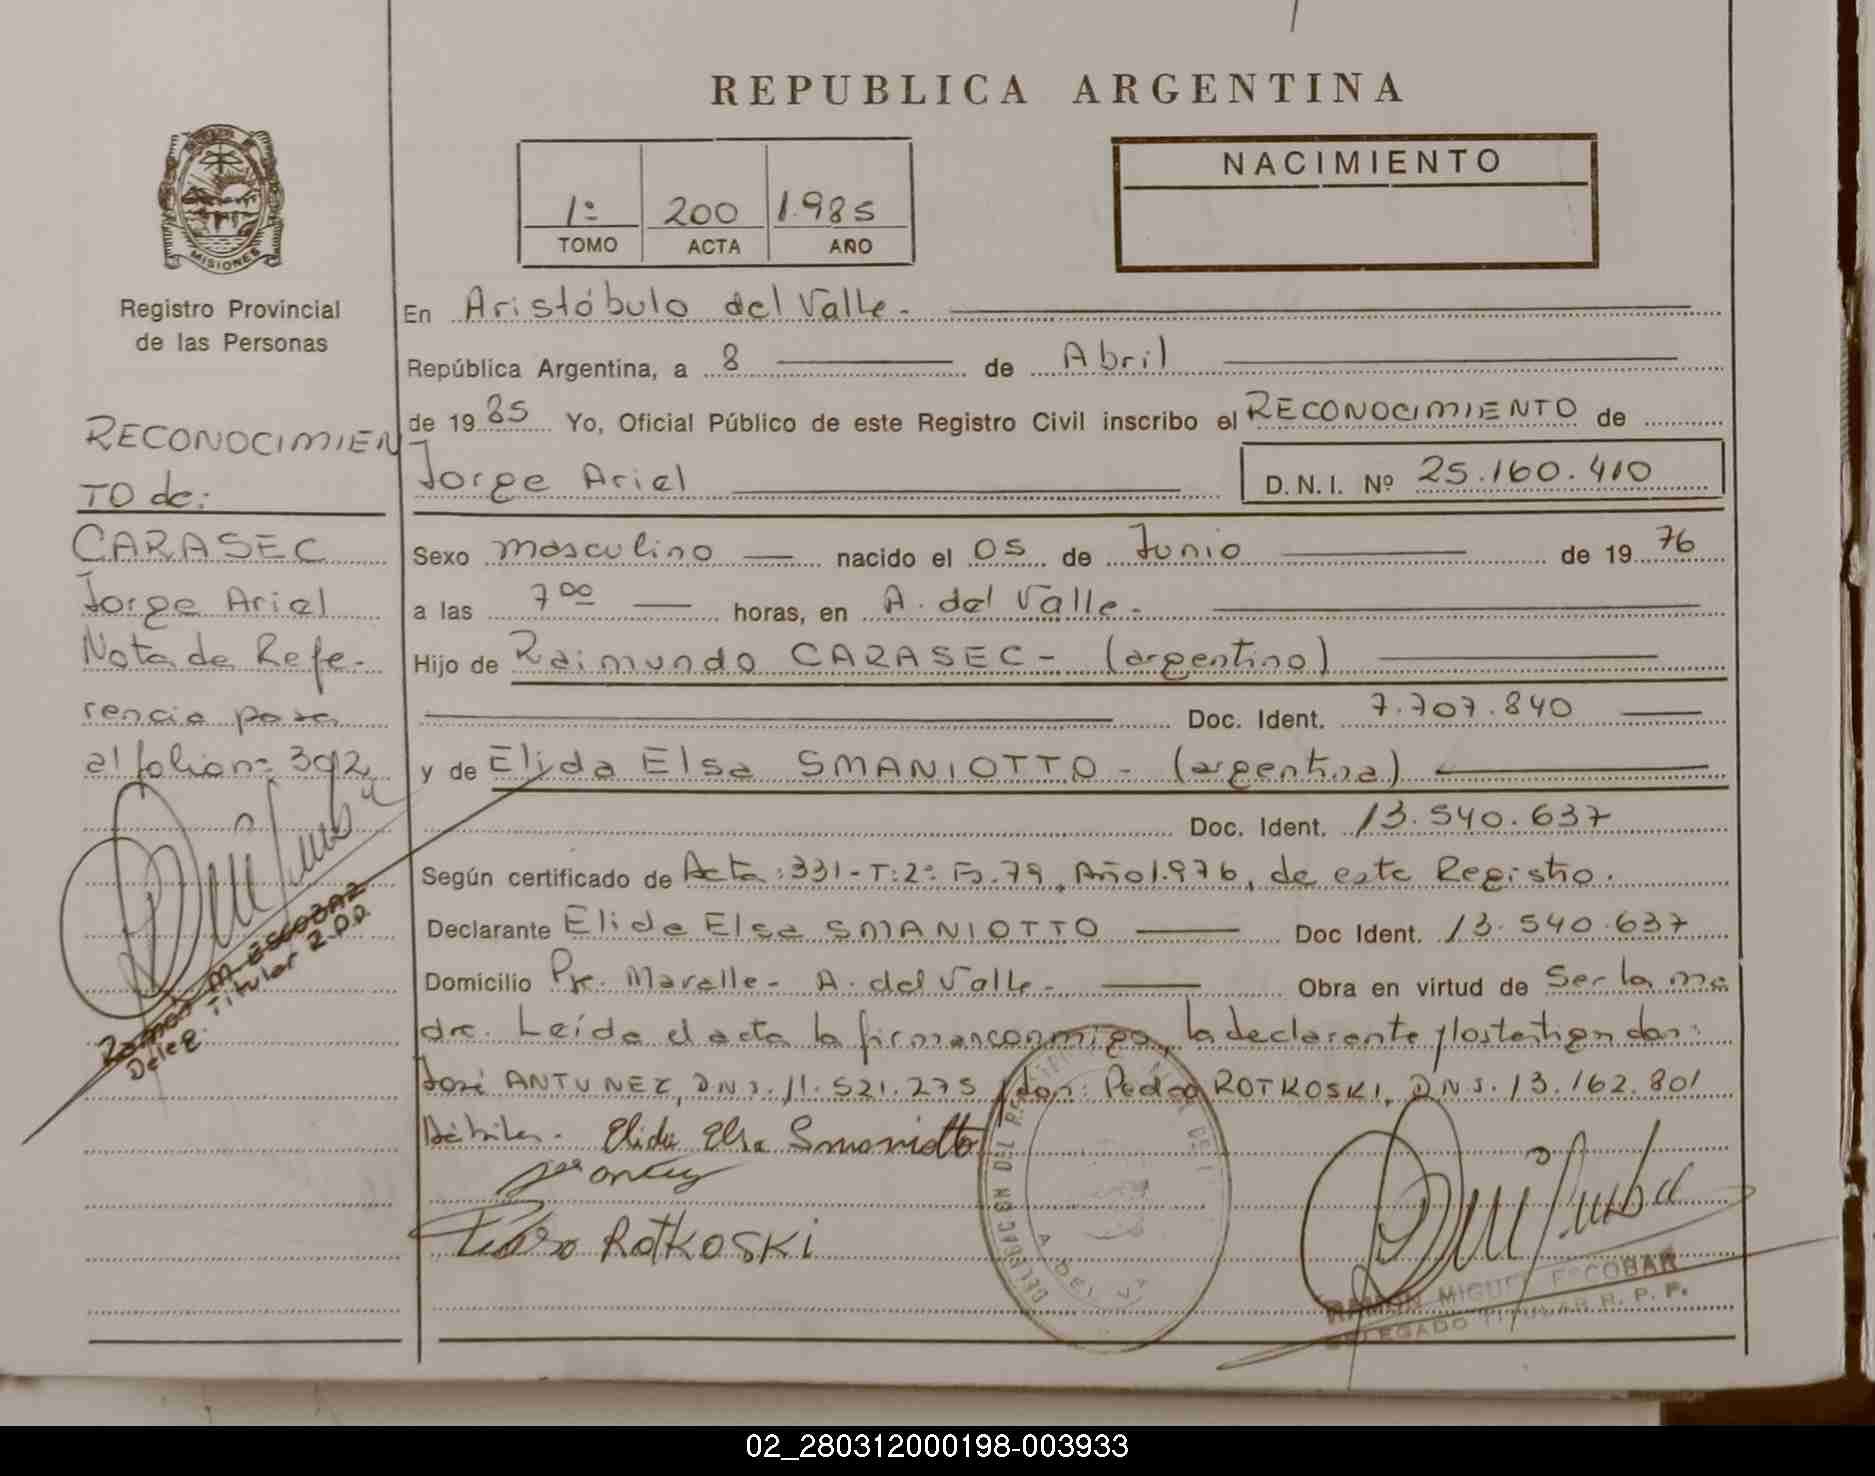 REPUBLICA ARGENTINA
NACIMIENTO
1º 200 1.985
TOMO ACTA AÑO
MISIONES
Registro Provincial
de las Personas
RECONOCIMIEN
TO de:
CARASEC
Jorge Ariel
Nota de Refe-
rencia para
al folio nº 392
Deleg. Titular R.P.P.
En Aristóbulo del Valle.-
República Argentina, a 8 de Abril
de 19 85 Yo, Oficial Público de este Registro Civil inscribo el RECONOCIMIENTO de
Jorge Ariel D.N.I. Nº 25.160.410
Sexo masculino nacido el 05 de Junio de 19 76
a las 7 00 horas, en A. del Valle.-
Hijo de Raimundo CARASEC- (argentino)
Doc. Ident. 7.707.840
y de Elida Elsa SMANIOTTO- (argentina)
Doc. Ident. 13.540.637
Según certificado de Acta: 331-T:2º Fº.79, Año 1.976, de este Registro.
Declarante Elida Elsa SMANIOTTO Doc Ident. 13.540.637
Domicilio A. del Valle- Obra en virtud de Ser la ma
dre. Leída el acta la firman conmigo, la declarante y los testigos don:
José ANTUNEZ, D.N.I. 11.521.275 y don: Pedro ROTKOSKI, D.N.I. 13.162.801
Hábiles.- Elida Elsa Smaniotto
Pedro ROTKOSKI
RAMON MIGUEL ESCOBAR
DELEGADO TITULAR R. P. P.
02_280312000198-003933